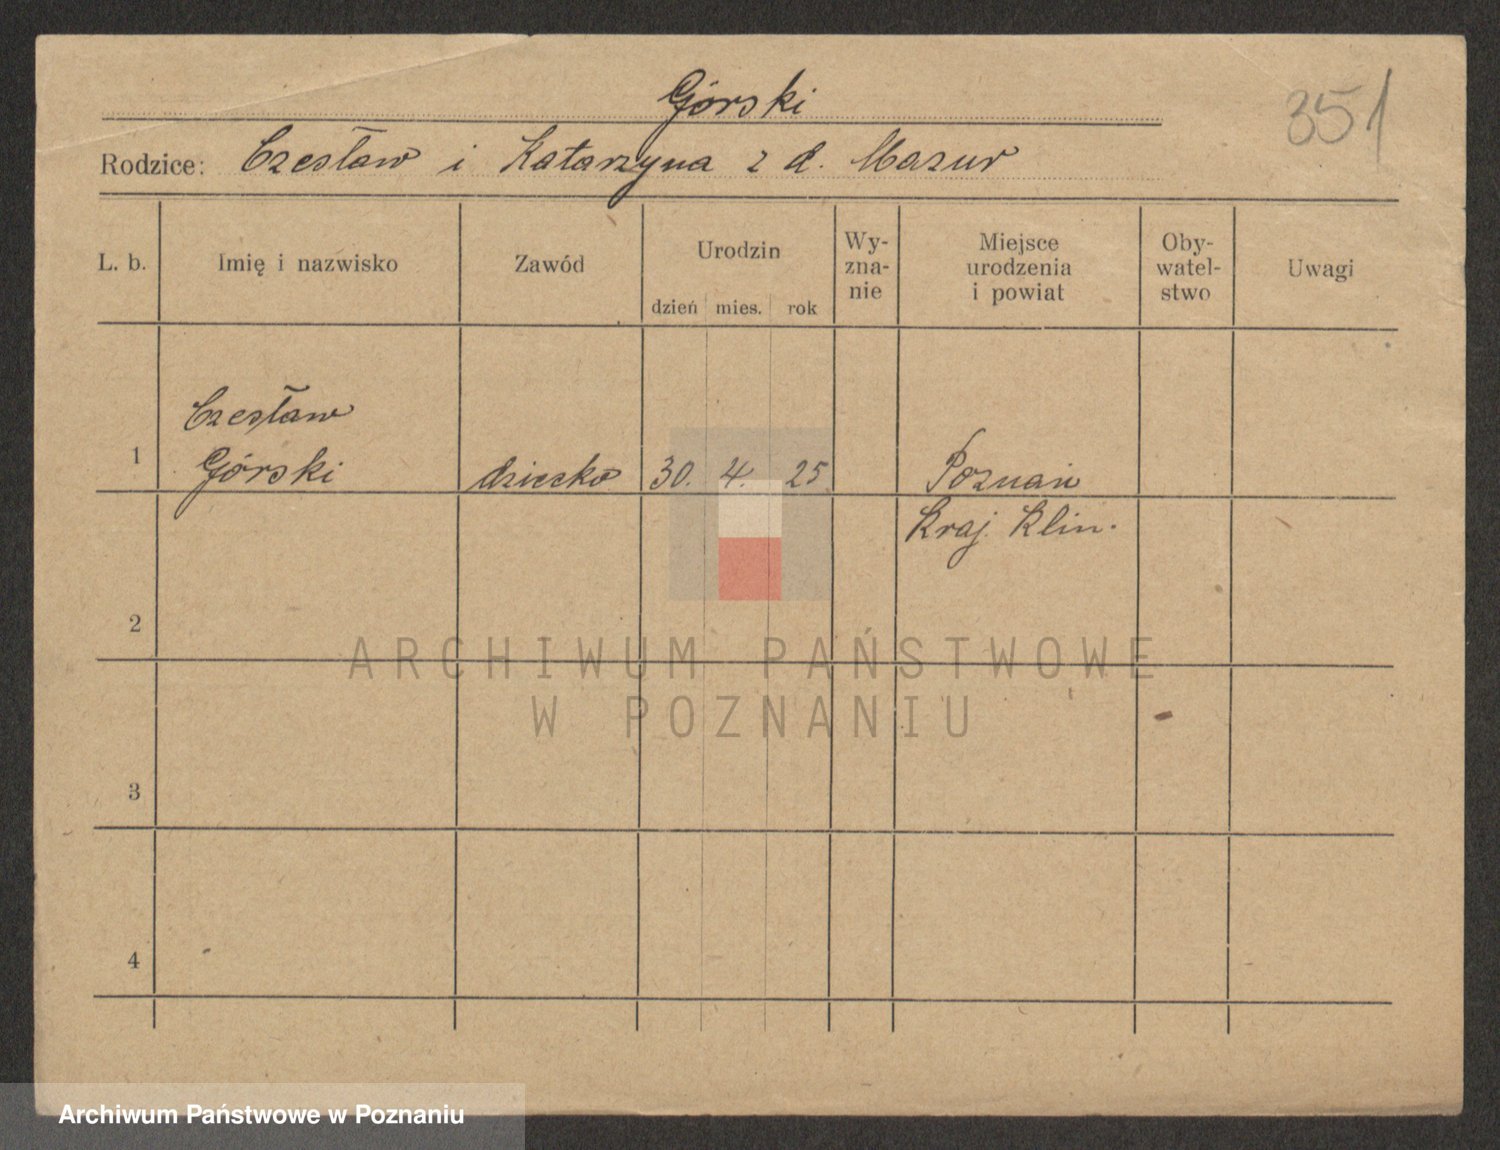 Górski
351
Rodzice: Czesław i Katarzyna z d. Mazur
L. b.
Imię i nazwisko
Zawód
Urodzin
dzień mies. rok
Wy-
zna-
nie
Miejsce
urodzenia
i powiat
Oby-
watel-
stwo
Uwagi
Czesław
1 Górski dziecko 30. 4. 25 Poznań
Kraj. Klin.
2
ARCHIWUM PAŃSTWOWE
W POZNANIU
3
4
Archiwum Państwowe w Poznaniu